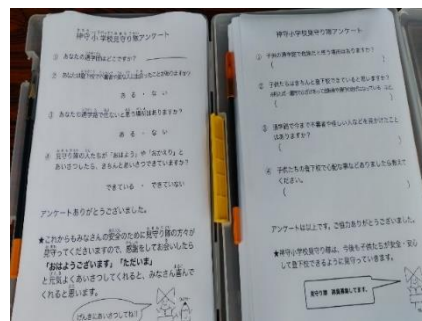 神守小学校見守り隊アンケート
① あなたの通学団はどこですか?
ある ・ ない
③ あなたの通学路で危ないと思う場所はありますか?
ある ・ ない
④ 見守り隊の人たちが「おはよう」や「おかえり」と
あいさつしたら、きちんとあいさつできていますか?
できている ・ できていない
アンケートありがとうございました。
★これからもみなさんの安全のために見守り隊の方々が
見守ってくださいますので、感謝をしてお会いしたら
「おはようございます」「ただいま」
と元気よくあいさつしてくれると、みなさん喜んで
くれると思います。
げんきにあいさつしてね!
神守小学校見守り隊アンケート
① 子供の通学路で危険だと思う場所はありますか?
② 子供たちはきちんと登下校できていると思いますか?
③ 通学路で今まで不審者や怪しい人などを見かけたこと
はありますか?
④ 子供たちの登下校で心配な事などありましたら教えて
ください。
アンケートは以上です。ご協力ありがとうございました。
★神守小学校見守り隊は、今後も子供たちが安全・安心
して登下校できるように見守っていきます。
見守り隊 隊員募集してます。